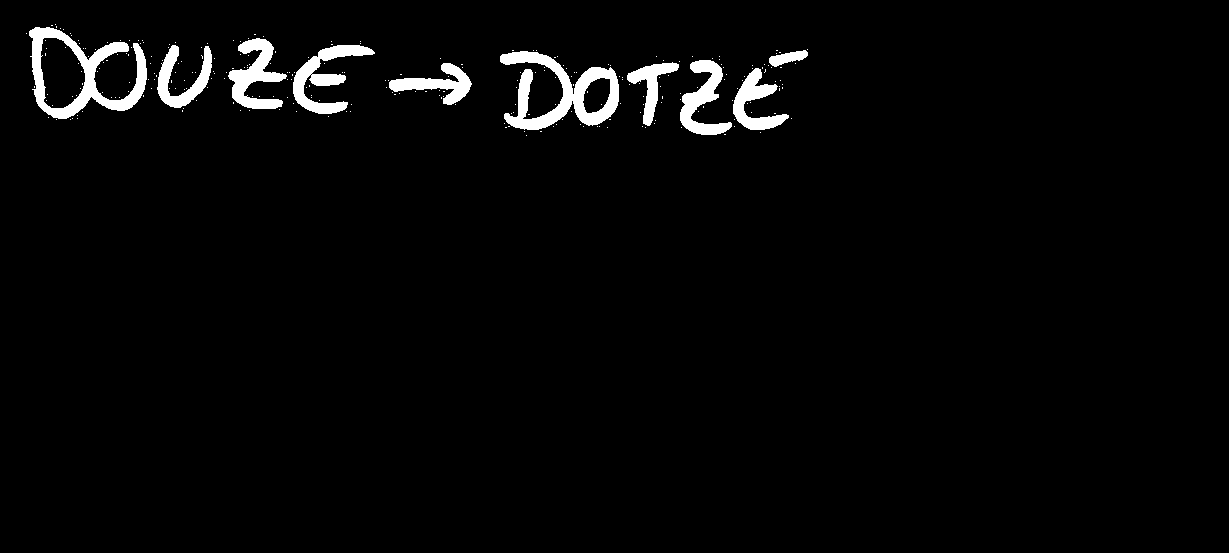 DOUZE → DOTZE